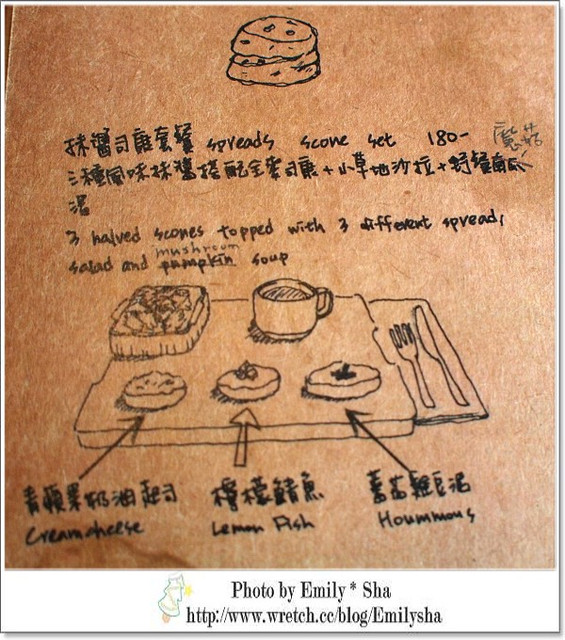 抹醬司康套餐 spreads scone set 180- 蘑菇
三種風味抹醬搭配全麥司康+小草地沙拉+野餐南瓜
湯
3 halved scones topped with 3 different spread,
mushroom
salad and pumpkin soup
青蘋果奶油起司 檸檬鯖魚 薯茴雞豆泥
Creamcheese Lemon Fish Hoummous
Photo by Emily * Sha
http://www.wretch.cc/blog/Emilysha